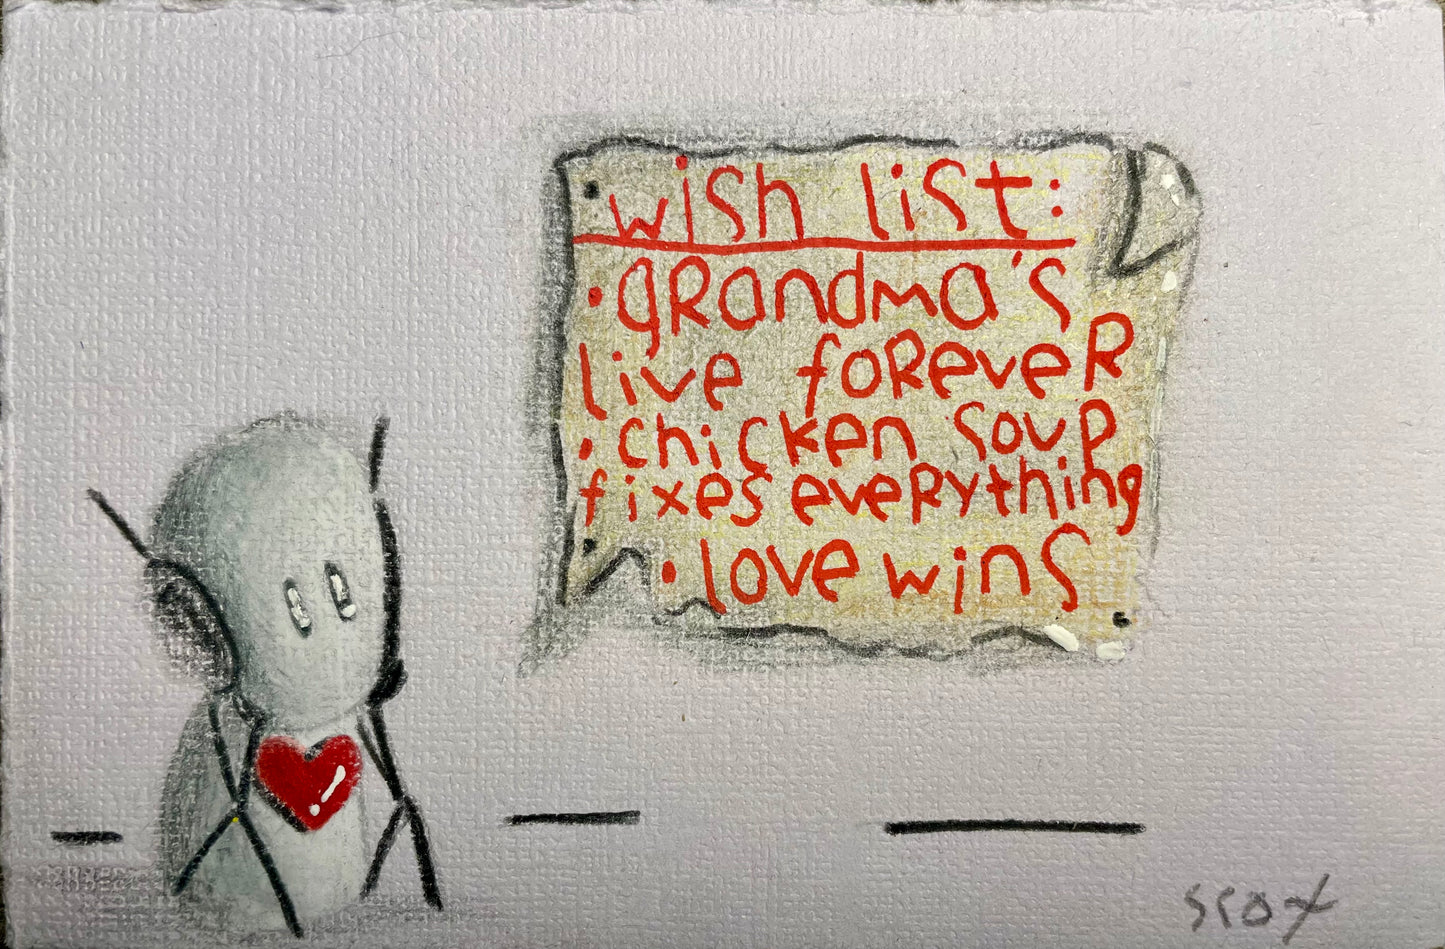 wish list:
• grandma's
live forever
• chicken soup
fixes everything
• love wins